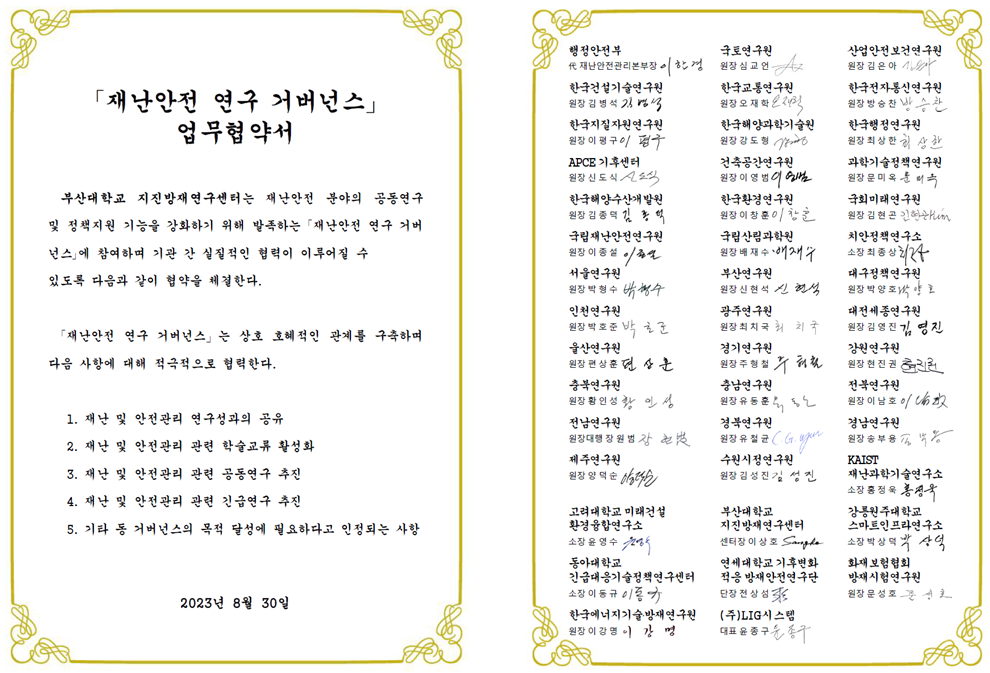 「재난안전 연구 거버넌스」
업무협약서
부산대학교 지진방재연구센터는 재난안전 분야의 공동연구
및 정책지원 기능을 강화하기 위해 발족하는「재난안전 연구 거버
넌스」에 참여하며 기관 간 실질적인 협력이 이루어질 수
있도록 다음과 같이 협약을 체결한다.
「재난안전 연구 거버넌스」는 상호 호혜적인 관계를 구축하며
다음 사항에 대해 적극적으로 협력한다.
1. 재난 및 안전관리 연구성과의 공유
2. 재난 및 안전관리 관련 학술교류 활성화
3. 재난 및 안전관리 관련 공동연구 추진
4. 재난 및 안전관리 관련 긴급연구 추진
5. 기타 동 거버넌스의 목적 달성에 필요하다고 인정되는 사항
2023년 8월 30일
행정안전부 국토연구원 산업안전보건연구원
代 재난안전관리본부장 이한경 원장 심교언 원장 김은아
한국건설기술연구원 한국교통연구원 한국전자통신연구원
원장 김병석 김병석 원장 오재학 오재학 원장 방승찬 방승찬
한국지질자원연구원 한국해양과학기술원 한국행정연구원
원장 이평구 이평구 원장 강도형 원장 최상한 최상한
APCE 기후센터 건축공간연구원 과학기술정책연구원
원장 신도식 신도식 원장 이영범 이영범 원장 문미옥 문미옥
한국해양수산개발원 한국환경연구원 국회미래연구원
원장 김종덕 김종덕 원장 이창훈 이창훈 원장 김현곤
국립재난안전연구원 국립산림과학원 치안정책연구소
원장 이종설 이종설 원장 배재수 배재수 소장 최종상
서울연구원 부산연구원 대구정책연구원
원장 박형수 박형수 원장 신현석 신현석 원장 박양호 박양호
인천연구원 광주연구원 대전세종연구원
원장 박호준 박호준 원장 최치국 최치국 원장 김영진 김영진
울산연구원 경기연구원 강원연구원
원장 편상훈 편상훈 원장 주형철 주형철 원장 현진권 현진권
충북연구원 충남연구원 전북연구원
원장 황인성 황인성 원장 유동훈 원장 이남호
전남연구원 경북연구원 경남연구원
원장대행 장원범 원장 유철균 원장 송부용
제주연구원 수원시정연구원 KAIST
원장 양덕순 원장 김성진 김성진 재난과학기술연구소
소장 홍정욱 홍정욱
고려대학교 미래건설 부산대학교 강릉원주대학교
환경융합연구소 지진방재연구센터 스마트인프라연구소
소장 윤영수 센터장 이상호 소장 박상덕 박상덕
동아대학교 연세대학교 기후변화 화재보험협회
긴급대응기술정책연구센터 적응 방재안전연구단 방재시험연구원
소장 이동규 이동규 단장 전상섬 원장 문성호 문성호
한국에너지기술방재연구원 (주)LIG시스템
원장 이강명 이강명 대표 윤종구 윤종구